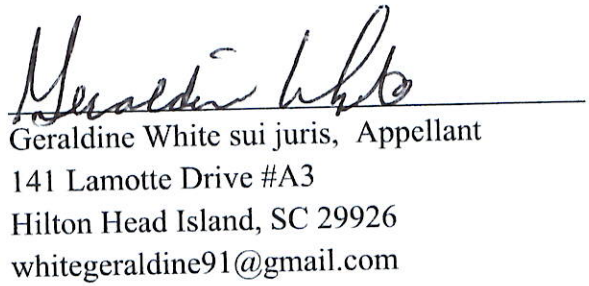 Geraldine White
Geraldine White sui juris, Appellant
141 Lamotte Drive #A3
Hilton Head Island, SC 29926
whitegeraldine91@gmail.com